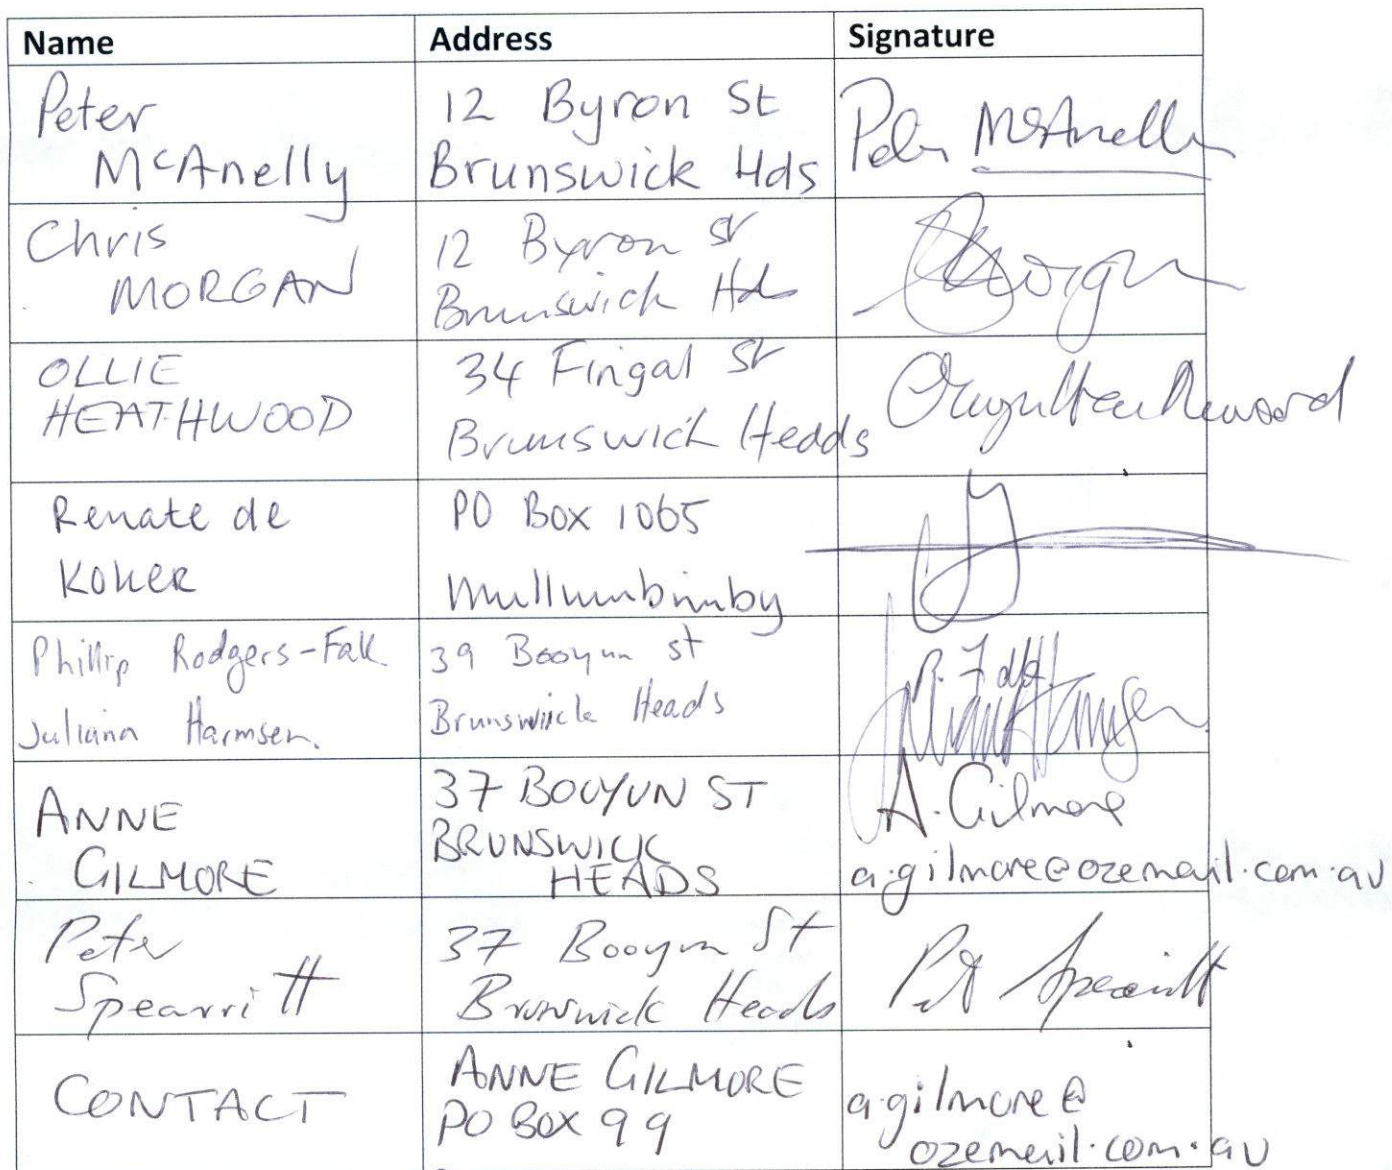 Name Address Signature
Peter
McAnelly
12 Byron St
Brunswick Hds
Peter McAnelly
Chris
MORGAN
12 Byron St
Brunswick Hds
Morgan
OLLIE
HEATHWOOD
34 Fingal St
Brunswick Hedds
Renate de
Koker
PO Box 1065
Mullumbimby
Phillip Rodgers-Falk
Juliana Harmsen.
39 Booyun st
Brunswick Heads
Harmsen
ANNE
GILMORE
37 BOOYUN ST
BRUNSWICK
HEADS
A. Gilmore
a.gilmore@ozemail.com.au
Peter
Spearritt
37 Booyun St
Brunswick Heads
Spearritt
CONTACT
ANNE GILMORE
PO BOX 99
a.gilmore@
ozemail.com.au